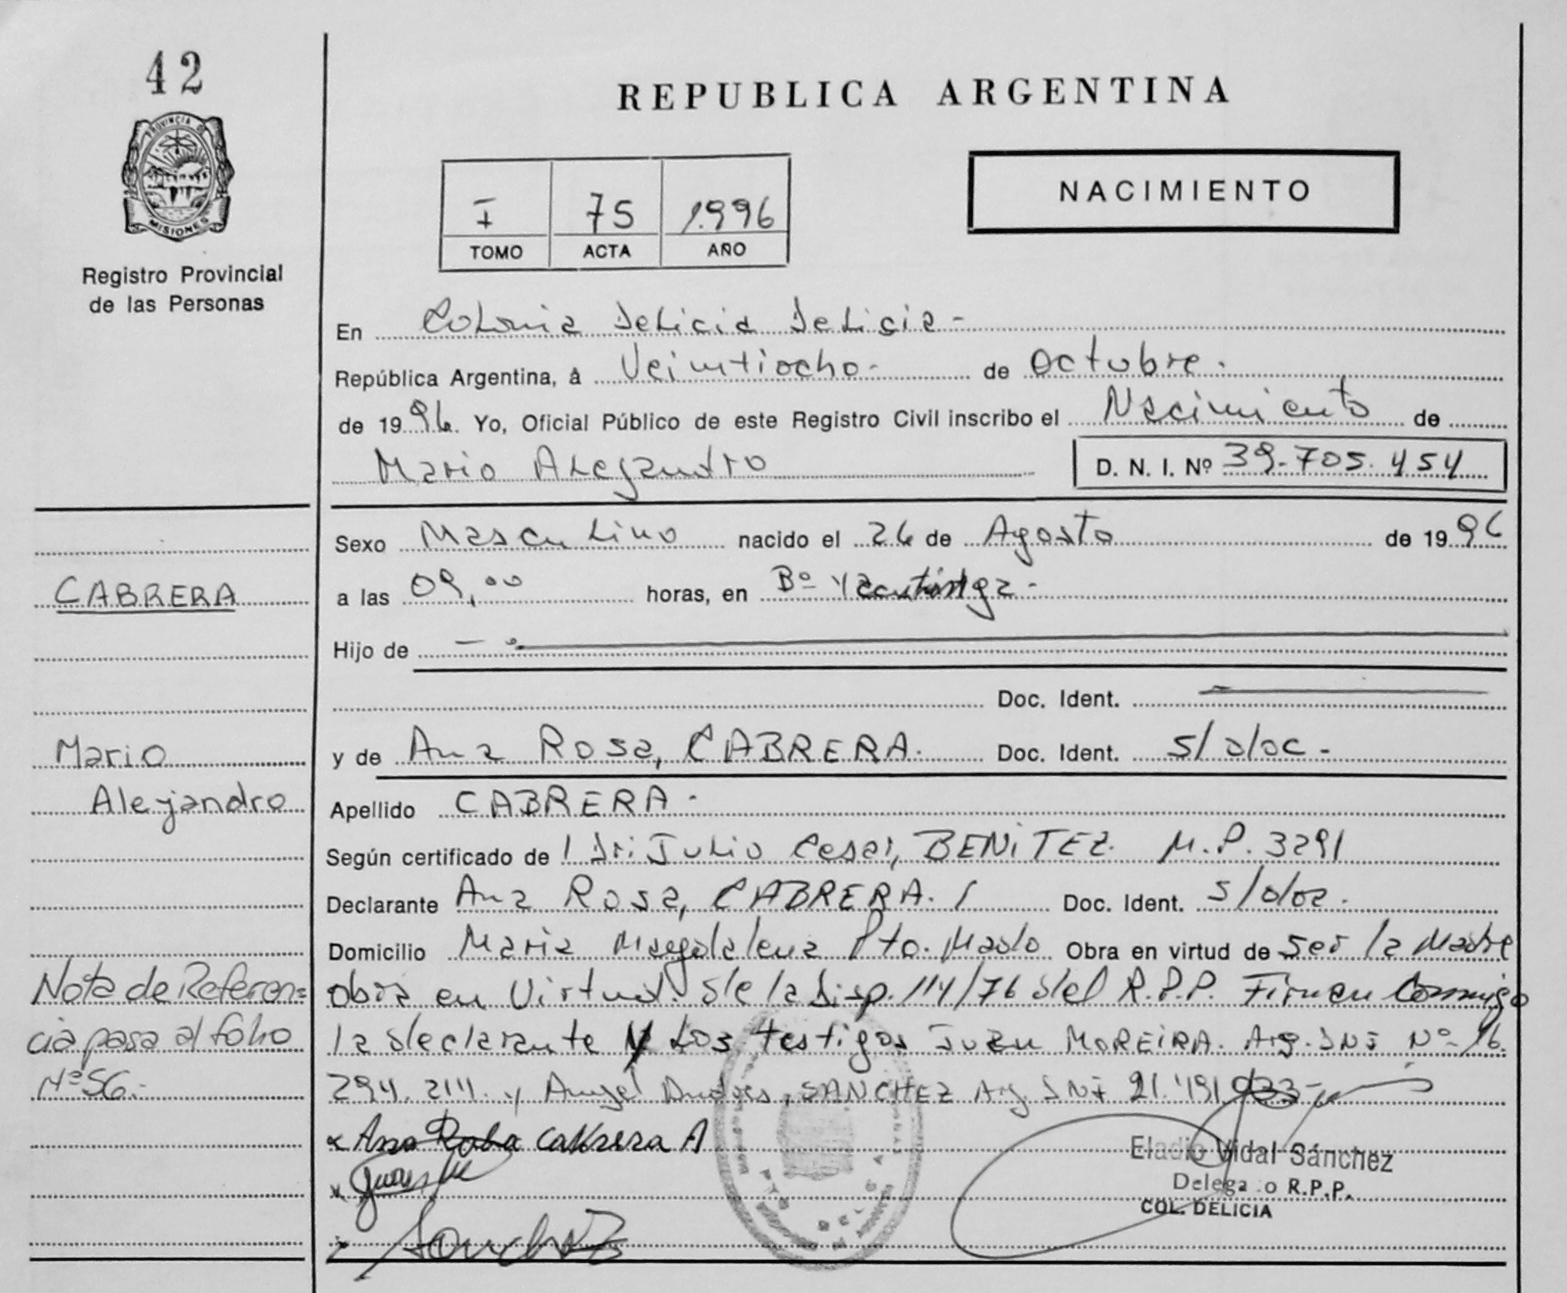 42
REPUBLICA ARGENTINA
PROVINCIA DE
MISIONES
Registro Provincial
de las Personas
I 75 1996
TOMO ACTA AÑO
NACIMIENTO
En Colonia Delicia Delicia -
República Argentina, á Veintiocho - de Octubre.
de 1996. Yo, Oficial Público de este Registro Civil inscribo el Nacimiento de
Mario Alejandro D. N. I. Nº 39.705.454
Sexo Masculino nacido el 26 de Agosto de 1996
CABRERA
a las 09,00 horas, en Bº
Hijo de
Doc. Ident.
Mario
y de Ana Rosa, CABRERA. Doc. Ident. s/doc -
Alejandro
Apellido CABRERA -
Según certificado de Dr: Julio Cesar, BENITEZ. M.P. 3291
Declarante Ana Rosa, CABRERA. / Doc. Ident. s/doc.
Domicilio Maria Magdalena Pto. Mado Obra en virtud de ser la Madre
Nota de Referen=
obra en Virtud. de la Disp. 114/76 del R.P.P. Firman Conmigo
cia pasa al folio
la declarante y Los testigos Juan MOREIRA. Arg. DNI Nº 16.
Nº 56.-
294. 211. y Angel Andres, SANCHEZ Arg DNI 21.191.
x Ana Rosa CaBRera A
Sanchez
Eladio Vidal Sánchez
Delegado R.P.P.
COL. DELICIA